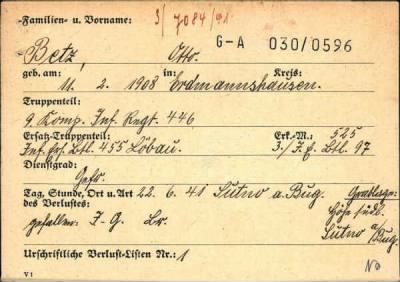 Familien- u. Vorname: 3/7084/41
G-A 030/0596
Betz, Otto.
geb. am: in: Kreis:
11. 2. 1908 Erdmannshausen.
Truppenteil:
9. Komp. Inf. Regt. 446
Ersatz-Truppenteil: Erk.-M.: 525
Inf. Ers. Btl. 455 Löbau. 3./ J. E. Btl. 97
Dienstgrad:
Gefr.
Tag, Stunde, Ort u. Art 22. 6. 41 Sutno a. Bug. Grablage:
des Verlustes: Höhe südl.
gefallen: I-G. Sutno a/Bug.
Urschriftliche Verlust-Listen Nr.: 1
V 1